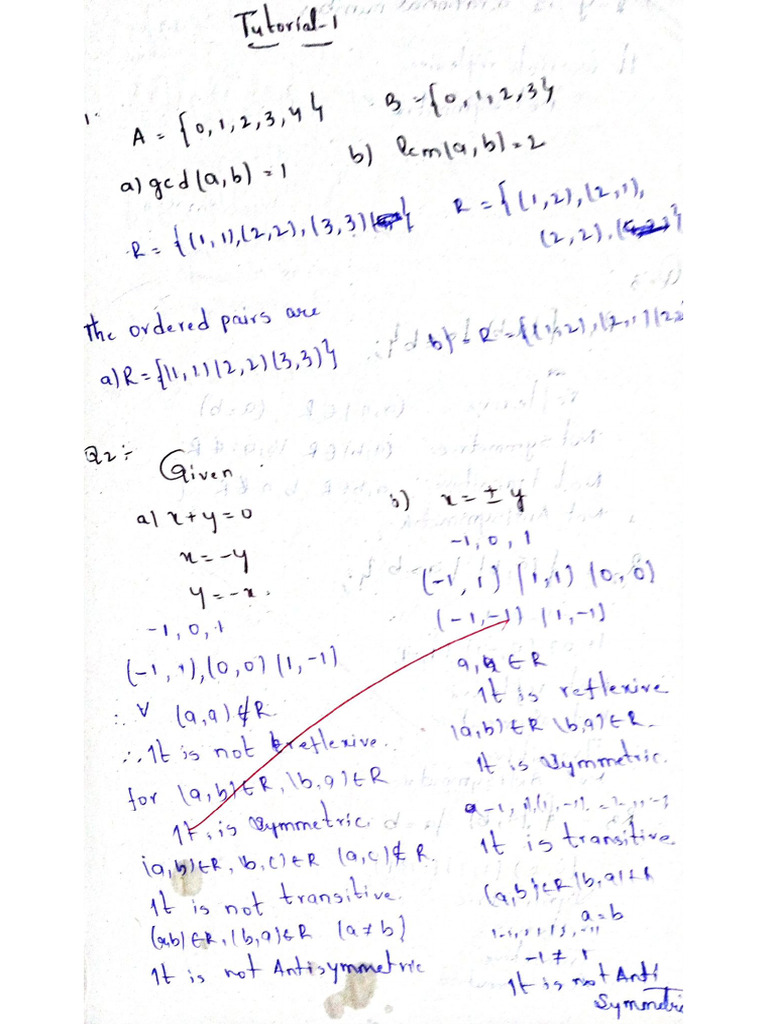 Tutorial-1
1. A = {0,1,2,3,4} B = {0,1,2,3}
a) gcd(a,b) = 1 b) lcm(a,b) = 2
R = {(1,1),(2,2),(3,3)} R = {(1,2),(2,1),
(2,2),
The ordered pairs are
a) R = {(1,1)(2,2)(3,3)} b) R = {(1,2),(2,1)(2,2
Q2:-
Given
a) x+y=0
x=-y
y=-x.
-1,0,1
(-1,1),(0,0)(1,-1)
∴ ∀ (a,a)∉R.
∴ It is not reflexive.
for (a,b)∈R,(b,a)∈R
It is Symmetric.
(a,b)∈R,(b,c)∈R (a,c)∉R.
It is not transitive.
(a,b)∈R,(b,a)∈R (a≠b)
It is not Antisymmetric
b) x = ± y
-1,0,1
(-1,1) (1,1) (0,0)
(-1,-1) (1,-1)
a,a ∈ R
It is reflexive
(a,b)∈R (b,a)∈R.
It is Symmetric.
It is transitive
(a,b)∈R (b,a)∈R
a=b
-1 ≠ 1
It is not Anti
Symmetri